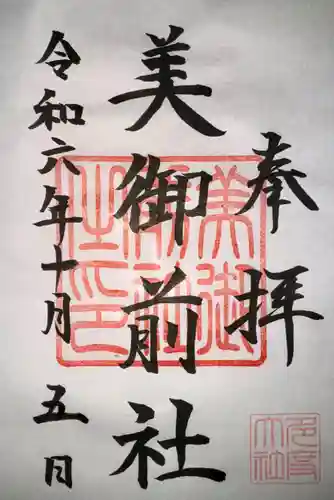 奉拝
美御前社
美御前社之印
令和六年十月五日